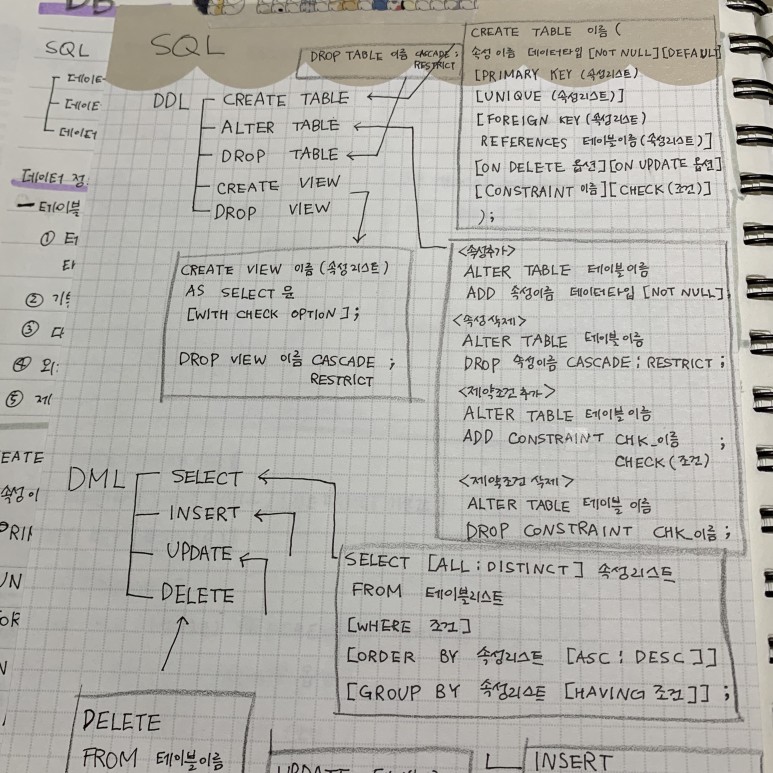 SQL
데이트
데이트
데이터
데이터 정
테이블
①
②
③ 다
④ 외
⑤ 제
EATE
속성이
SQL
DROP TABLE 이름 CASCADE ;
RESTRICT
DDL
CREATE TABLE
ALTER TABLE
DROP TABLE
CREATE VIEW
DROP VIEW
CREATE TABLE 이름 (
속성이름 데이터타입 [NOT NULL][DEFAULT]
[PRIMARY KEY (속성리스트)
[UNIQUE (속성리스트)]
[FOREIGN KEY (속성리스트)
REFERENCES 테이블이름(속성리스트)]
[ON DELETE 옵션][ON UPDATE 옵션]
[CONSTRAINT 이름][CHECK(조건)]
);
CREATE VIEW 이름(속성리스트)
AS SELECT 문
[WITH CHECK OPTION];
DROP VIEW 이름 CASCADE ;
RESTRICT
<속성추가>
ALTER TABLE 테이블이름
ADD 속성이름 데이터타입 [NOT NULL];
<속성삭제>
ALTER TABLE 테이블이름
DROP 속성이름 CASCADE ¦ RESTRICT ;
<제약조건 추가>
ALTER TABLE 테이블이름
ADD CONSTRAINT CHK_이름 ;
CHECK(조건)
<제약조건 삭제>
ALTER TABLE 테이블이름
DROP CONSTRAINT CHK_이름 ;
DML
SELECT
INSERT
UPDATE
DELETE
SELECT [ALL ¦ DISTINCT] 속성리스트
FROM 테이블리스트
[WHERE 조건]
[ORDER BY 속성리스트 [ASC ¦ DESC]]
[GROUP BY 속성리스트 [HAVING 조건]] ;
DELETE
FROM 테이블이름
UPDATE
INSERT